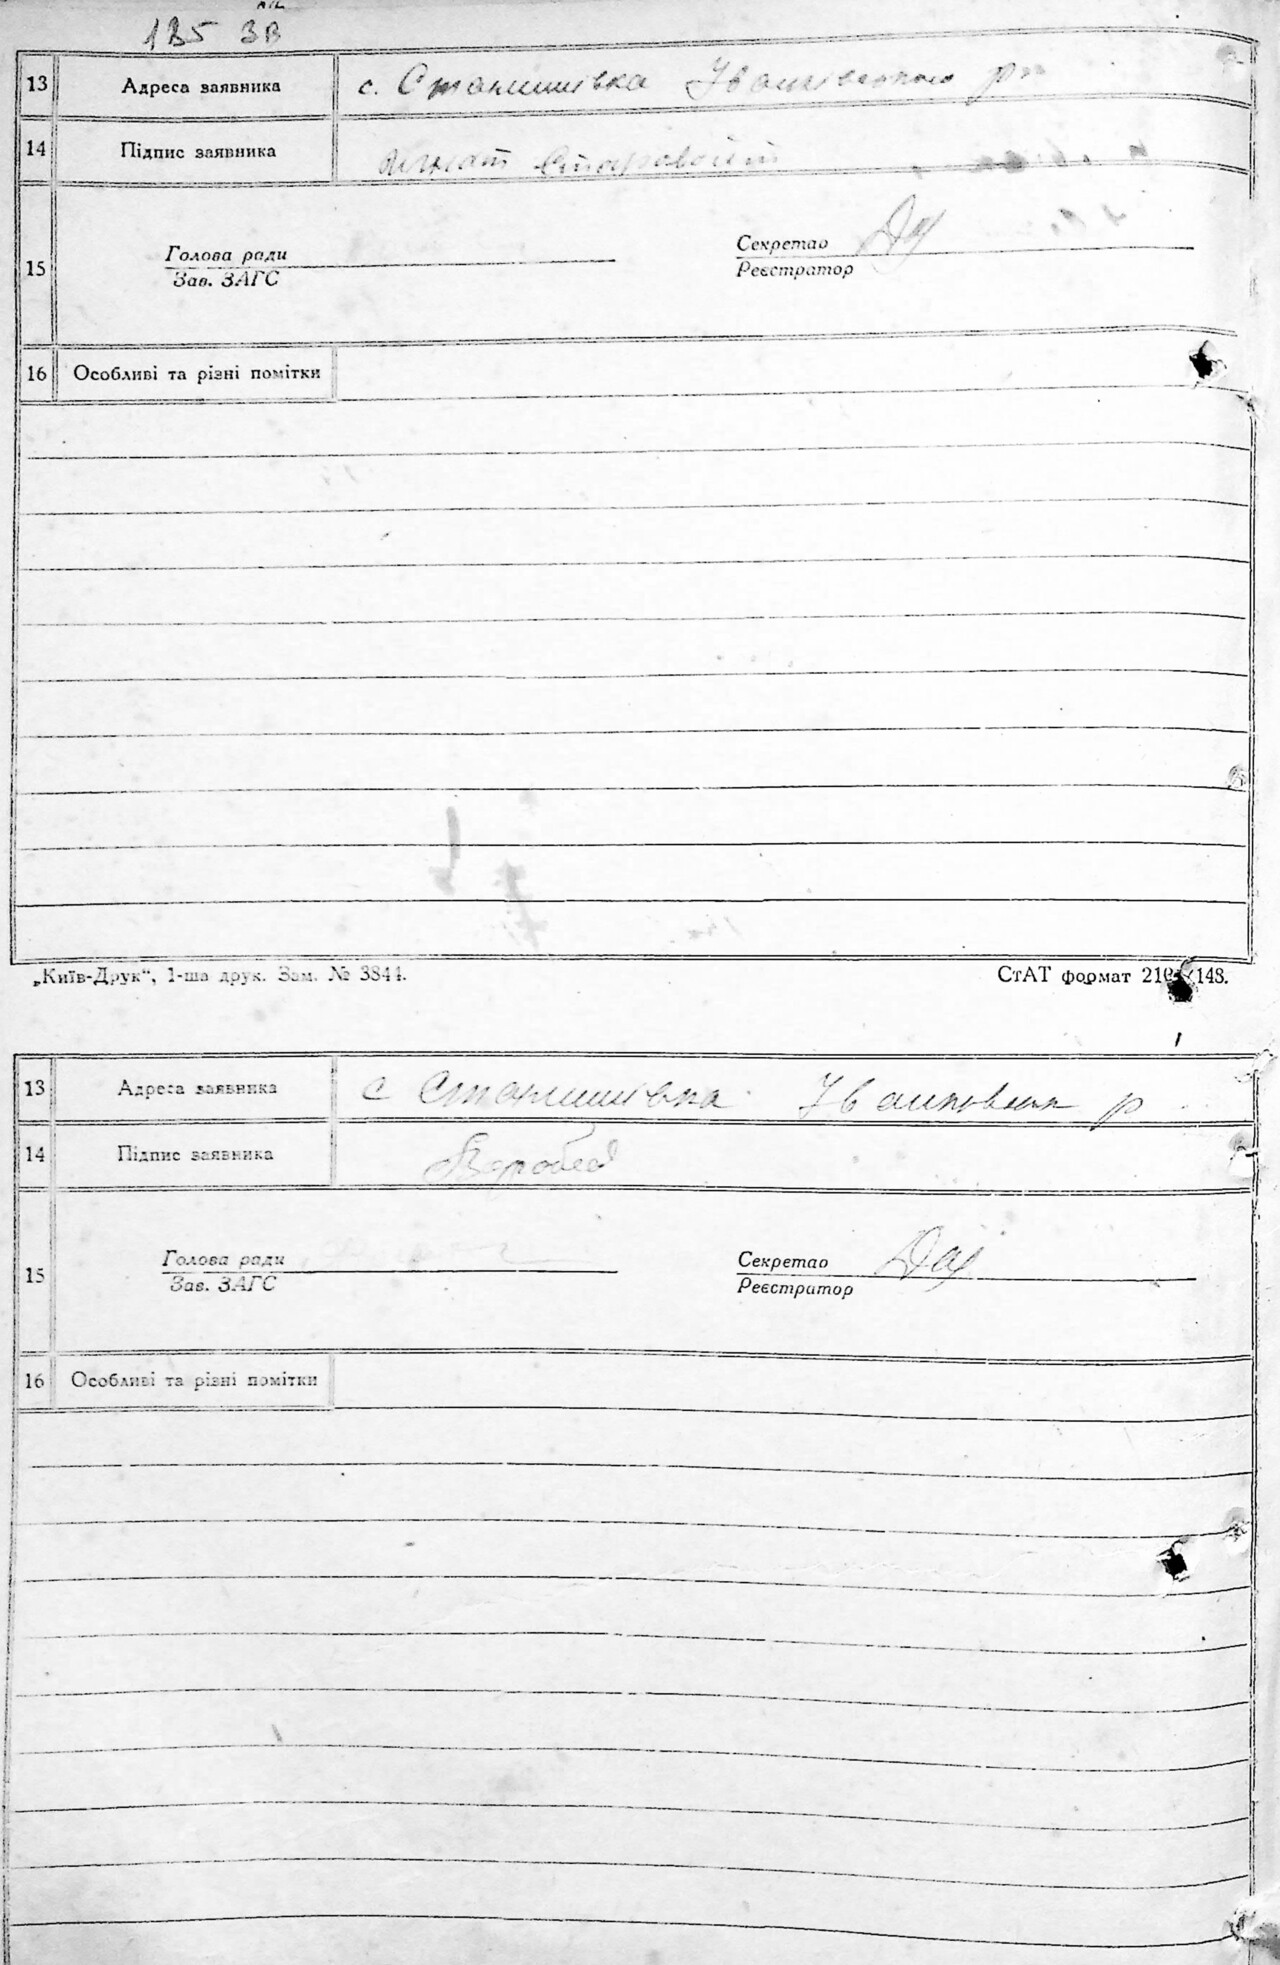 135 зв
13 Адреса заявника с. Станишівка Іванківського рн
14 Підпис заявника Старовойт
15 Голова ради Секретар
Зав. ЗАГС Реєстратор
16 Особливі та різні помітки
„Київ-Друк“, 1-ша друк. Зам. № 3844. СтАТ формат 210×148.
13 Адреса заявника с Станишівка р
14 Підпис заявника
15 Голова ради Секретар
Зав. ЗАГС Реєстратор
16 Особливі та різні помітки